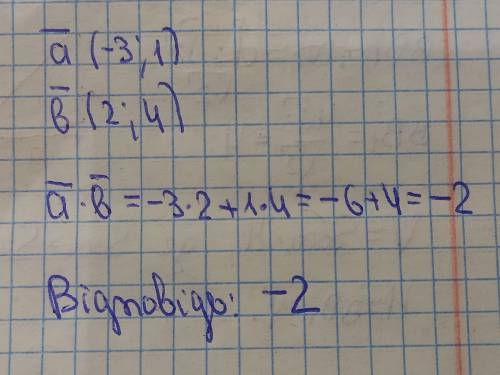 a̅ (-3; 1)
b̅ (2; 4)
a̅ · b̅ = -3 · 2 + 1 · 4 = -6 + 4 = -2
Відповідь: -2